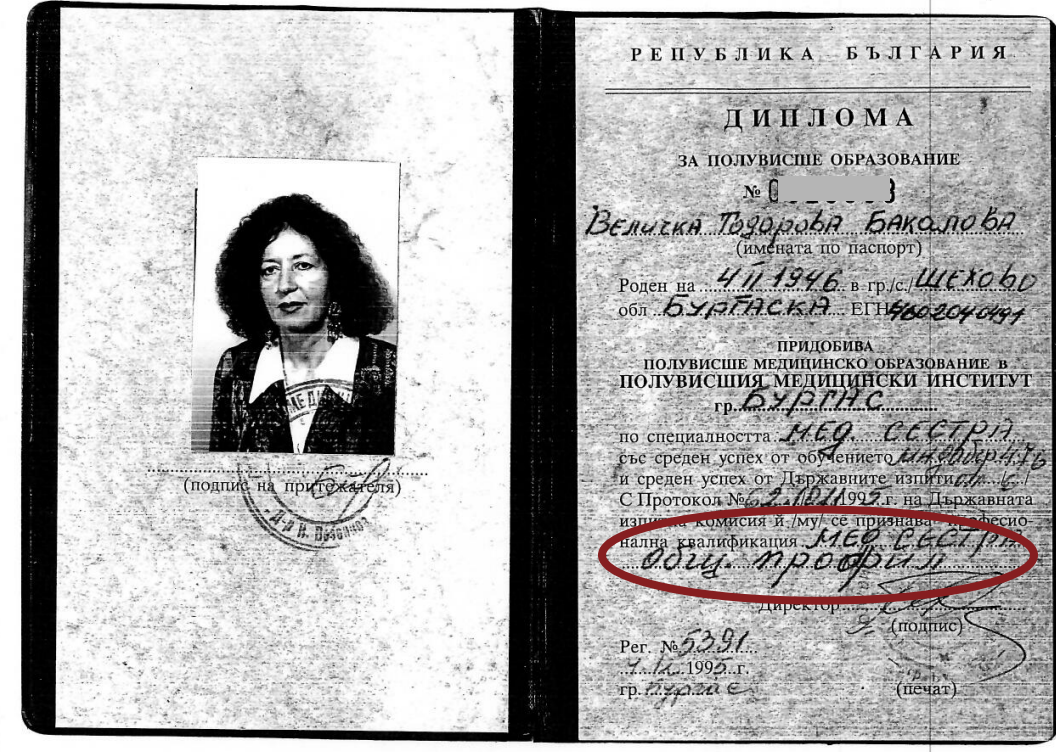 РЕПУБЛИКА БЪЛГАРИЯ
ДИПЛОМА
ЗА ПОЛУВИСШЕ ОБРАЗОВАНИЕ
№
Величка Тодорова БАКАЛОВА
(имената по паспорт)
Роден на 4 II 1946 в гр./с./ ШЕХОВО
обл БУРГАСКА ЕГН 4602040491
ПРИДОБИВА
ПОЛУВИСШЕ МЕДИЦИНСКО ОБРАЗОВАНИЕ в
ПОЛУВИСШИЯ МЕДИЦИНСКИ ИНСТИТУТ
гр. БУРГАС
по специалността МЕД. СЕСТРА
със среден успех от обучението мн. добър
и среден успех от Държавните изпити
С Протокол № 1995 г. на Държавната
изпитна комисия ѝ /му/ се признава професио-
нална квалификация МЕД СЕСТРА
общ. профил
Директор
(подпис)
Рег. № 5391
1995 г.
гр. Бургас
(печат)
(подпис на притежателя)